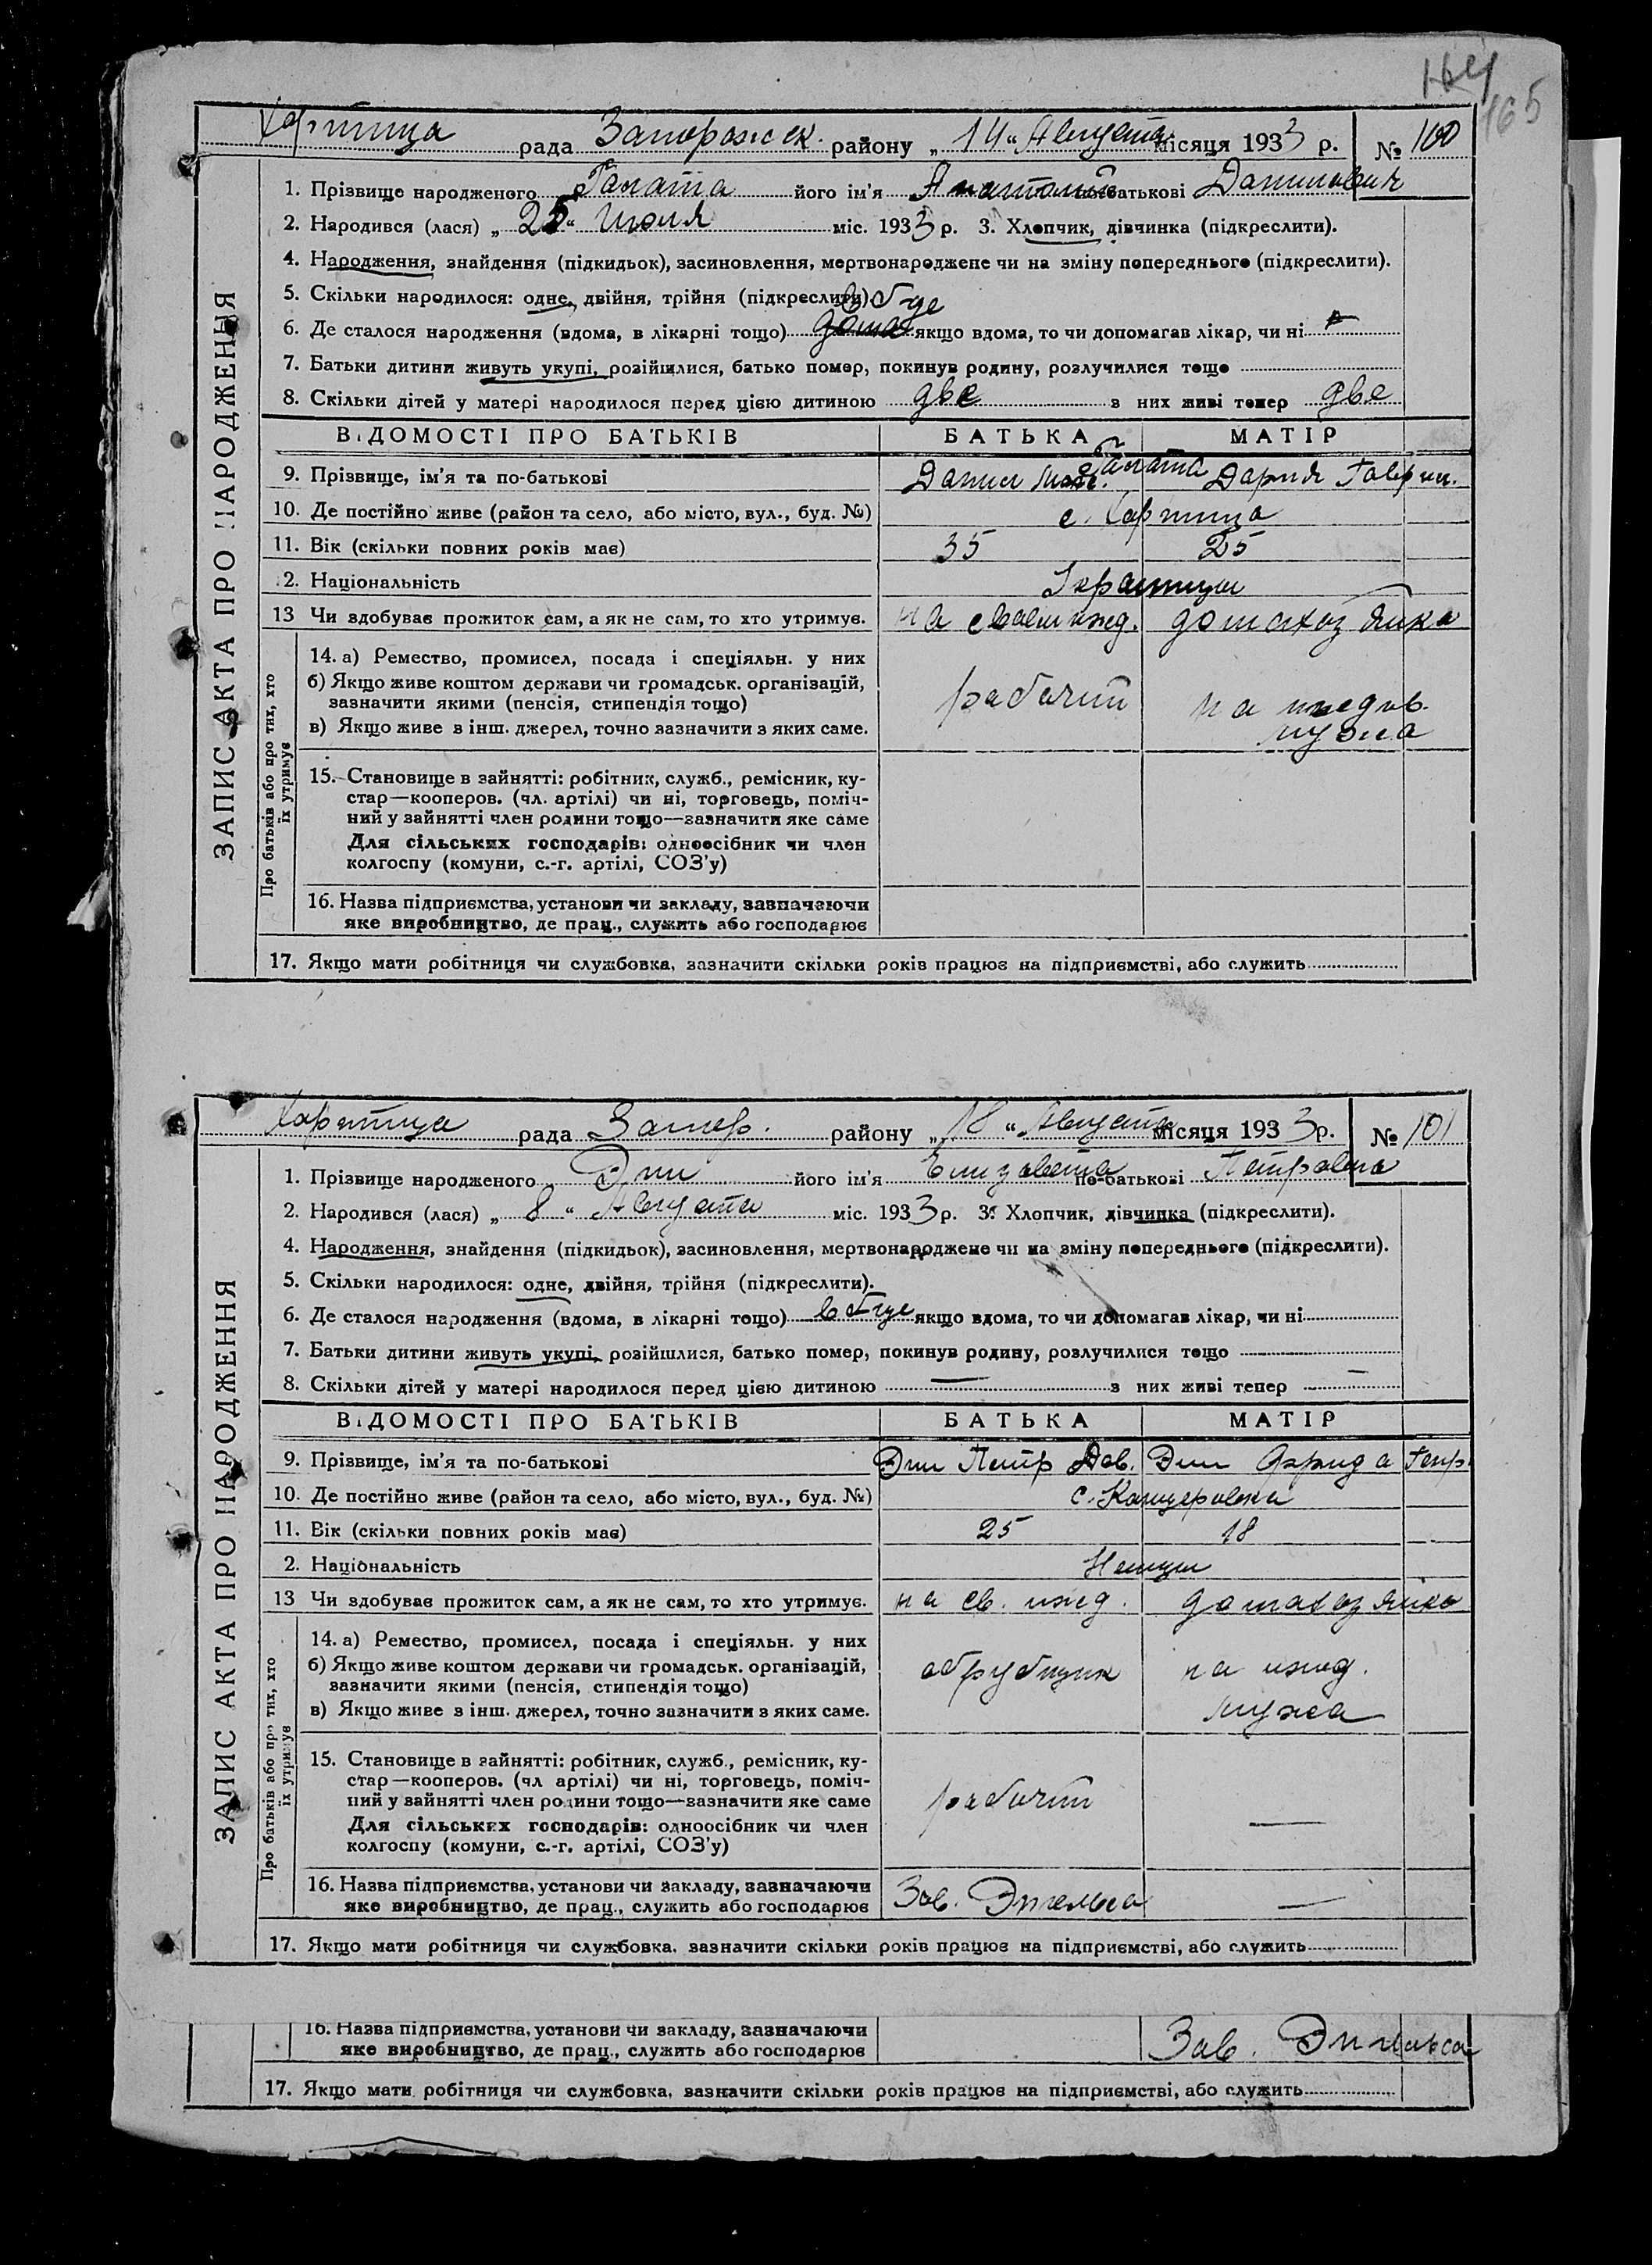 164
165
Хортица рада Запорожск. району „ 14 “ Августа місяця 1933 р. № 100
ЗАПИС АКТА ПРО НАРОДЖЕННЯ
1. Прізвище народженого Галата його ім'я Анатолий по-батькові Данилович
2. Народився (лася) „ 25 “ Июля міс. 1933 р. 3. Хлопчик, дівчинка (підкреслити).
4. Народження, знайдення (підкидьок), засиновлення, мертвонароджене чи на зміну попереднього (підкреслити).
5. Скільки народилося: одне, двійня, трійня (підкреслити)
6. Де сталося народження (вдома, в лікарні тощо) дома в б-це якщо вдома, то чи допомагав лікар, чи ні
7. Батьки дитини живуть укупі, розійшлися, батько помер, покинув родину, розлучилися тощо
8. Скільки дітей у матері народилося перед цією дитиною две з них живі тепер две
ВІДОМОСТІ ПРО БАТЬКІВ БАТЬКА МАТІР
9. Прізвище, ім'я та по-батькові Галата Данил Дария Гаврил.
10. Де постійно живе (район та село, або місто, вул., буд. №) с. Хортица
11. Вік (скільки повних років має) 35 25
2. Національність Украинцы
13 Чи здобуває прожиток сам, а як не сам, то хто утримує. на своем ижд. домохозяйка
Про батьків або про тих, хто їх утримує
14. а) Ремество, промисел, посада і спеціяльн. у них
б) Якщо живе коштом держави чи громадськ. організацій,
зазначити якими (пенсія, стипендія тощо) рабочий на иждив.
в) Якщо живе з інш. джерел, точно зазначити з яких саме. мужа
15. Становище в зайнятті: робітник, служб., ремісник, ку-
стар—кооперов. (чл. артілі) чи ні, торговець, поміч-
ний у зайнятті член родини тощо—зазначити яке саме
Для сільських господарів: одноосібник чи член
колгоспу (комуни, с.-г. артілі, СОЗ'у)
16. Назва підприємства, установи чи закладу, зазначаючи
яке виробництво, де прац., служить або господарює
17. Якщо мати робітниця чи службовка, зазначити скільки років працює на підприємстві, або служить
Хортица рада Запор. району „ 18 “ Августа місяця 1933 р. № 101
ЗАПИС АКТА ПРО НАРОДЖЕННЯ
1. Прізвище народженого Энн його ім'я Елизавета по-батькові Петровна
2. Народився (лася) „ 8 “ Августа міс. 1933 р. 3. Хлопчик, дівчинка (підкреслити).
4. Народження, знайдення (підкидьок), засиновлення, мертвонароджене чи на зміну попереднього (підкреслити).
5. Скільки народилося: одне, двійня, трійня (підкреслити).
6. Де сталося народження (вдома, в лікарні тощо) в б-це якщо вдома, то чи допомагав лікар, чи ні
7. Батьки дитини живуть укупі, розійшлися, батько помер, покинув родину, розлучилися тощо
8. Скільки дітей у матері народилося перед цією дитиною — з них живі тепер —
ВІДОМОСТІ ПРО БАТЬКІВ БАТЬКА МАТІР
9. Прізвище, ім'я та по-батькові Энн Петр Дав. Энн Фрида Генр.
10. Де постійно живе (район та село, або місто, вул., буд. №) с. Канцеровка
11. Вік (скільки повних років має) 25 18
2. Національність Немцы
13 Чи здобуває прожиток сам, а як не сам, то хто утримує. на св. ижд. домохозяйка
Про батьків або про тих, хто їх утримує
14. а) Ремество, промисел, посада і спеціяльн. у них
б) Якщо живе коштом держави чи громадськ. організацій, обрубщик на ижд.
зазначити якими (пенсія, стипендія тощо)
в) Якщо живе з інш. джерел, точно зазначити з яких саме. мужа
15. Становище в зайнятті: робітник, служб., ремісник, ку-
стар—кооперов. (чл артілі) чи ні, торговець, поміч-
ний у зайнятті член родини тощо—зазначити яке саме рабочий —
Для сільських господарів: одноосібник чи член
колгоспу (комуни, с.-г. артілі, СОЗ'у)
16. Назва підприємства, установи чи закладу, зазначаючи Зав. Энгельса —
яке виробництво, де прац., служить або господарює
17. Якщо мати робітниця чи службовка, зазначити скільки років працює на підприємстві, або служить
16. Назва підприємства, установи чи закладу, зазначаючи
яке виробництво, де прац., служить або господарює Зав. Энгельса
17. Якщо мати робітниця чи службовка, зазначити скільки років працює на підприємстві, або служить